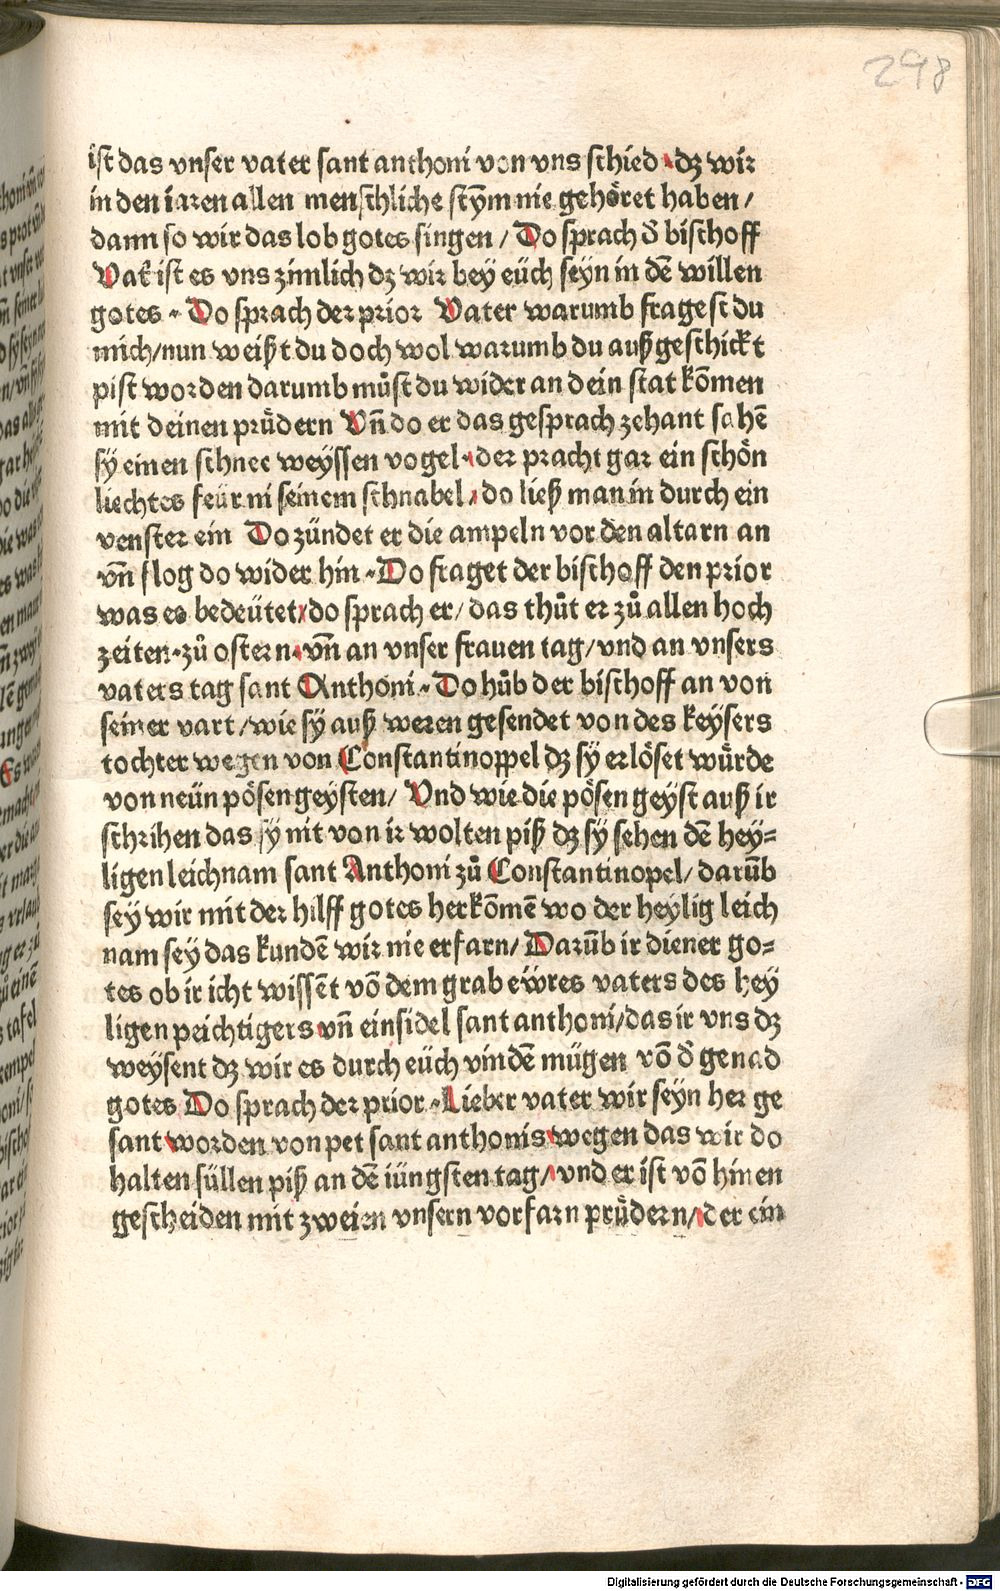 298
ist das vnser vater sant anthoni von vns schied · dz wir
in den iaren allen menschliche stym̄ nie gehöret haben /
dann so wir das lob gotes singen / Do sprach d̕ bischoff
Vat̕ ist es vns zimlich dz wir bey eüch seyn in dē willen
gotes · Do sprach der prior Vater warumb fragest du
mich / nun weißt du doch wol warumb du auß geschickt
pist worden darumb můst du wider an dein stat kōmen
mit deinen prüdern Vn̄ do er das gesprach zehant sahē
sÿ einen schnee weyssen vogel · der pracht gar ein schön
liechtes feür ni seinem schnabel / do ließ man in durch ein
venster ein Do zündet er die ampeln vor den altarn an
vn̄ flog do wider hin · Do fraget der bischoff den prior
was es bedeütet / do sprach er / das thůt er zů allen hoch
zeiten · zů ostern · vn̄ an vnser frauen tag / vnd an vnsers
vaters tag sant Anthoni · Do hůb der bischoff an von
seiner vart / wie sÿ auß weren gesendet von des keÿsers
tochter wegen von Constantinoppel dz sÿ erlöset würde
von neün pösen geysten / Vnd wie die pösen geyst auß ir
schrihen das sÿ nit von ir wolten piß dz sÿ sehen dē hey=
ligen leichnam sant Anthoni zů Constantinopel / darūb
sey wir mit der hilff gotes herkōmē wo der heylig leich
nam sey das kundē wir nie erfarn / Darūb ir diener go=
tes ob ir icht wissēt vō dem grab eẅres vaters des hey
ligen peichtigers vn̄ einsidel sant anthoni / das ir vns dz
weysent dz wir es durch eüch vindē mügen vō d̕ genad
gotes Do sprach der prior · Lieber vater wir seyn her ge
sant worden von pet sant anthonis wegen das wir do
halten süllen piß an dē iüngsten tag / vnd er ist vō hinen
gescheiden mit zweien vnsern vorfarn prüdern / der ein
Digitalisierung gefördert durch die Deutsche Forschungsgemeinschaft - DFG